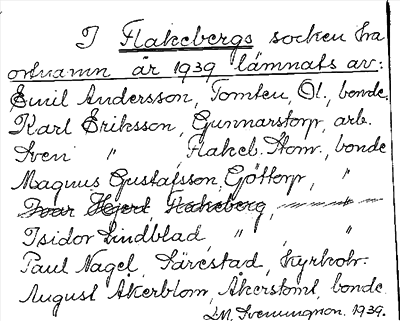 I Flakebergs socken ha
ortnamn år 1939 lämnats av:
Emil Andersson, Tomten, Ol., bonde.
Karl Eriksson, Gunnarstorp, arb.
Sven " , Flakeb. Stom., bonde
Magnus Gustafsson, Göttorp, "
Ivar Hjert, Flakeberg, "
Isidor Lindblad, " , "
Paul Nagel, Särestad, kyrkov.
August Åkerblom, Åkerstoml, bonde.
1939.